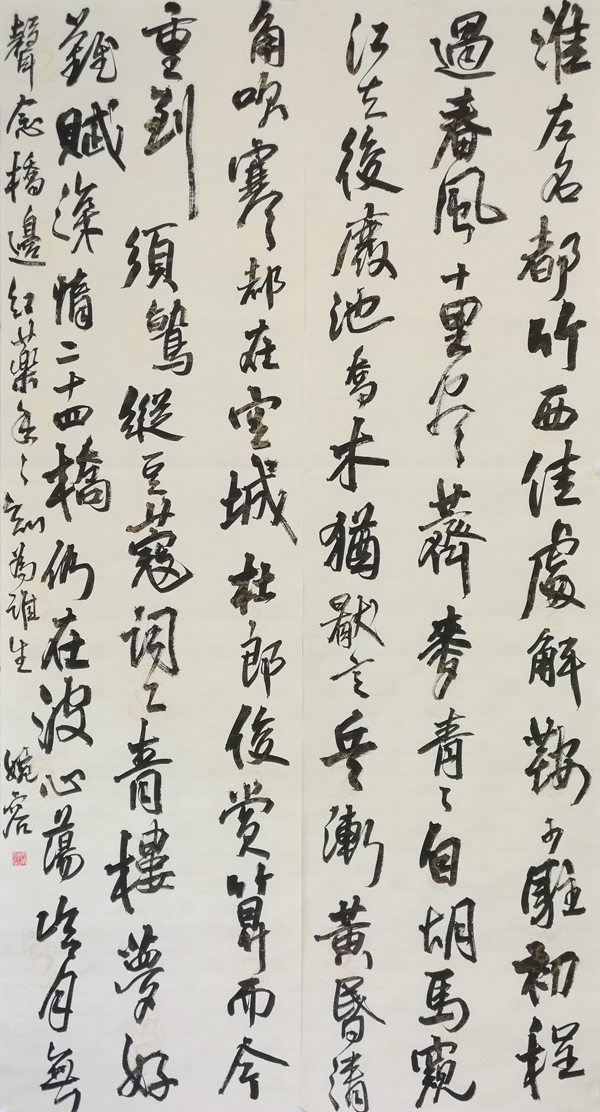 淮左名都竹西佳處解鞍少駐初程
過春風十里盡薺麥青〻自胡馬窺
江去後廢池喬木猶厭言兵漸黃昏清
角吹寒都在空城杜郎俊賞算而今
重到須驚縱豆蔻詞工青樓夢好
難賦深情二十四橋仍在波心蕩冷月無
聲念橋邊紅藥年〻知為誰生 婉容